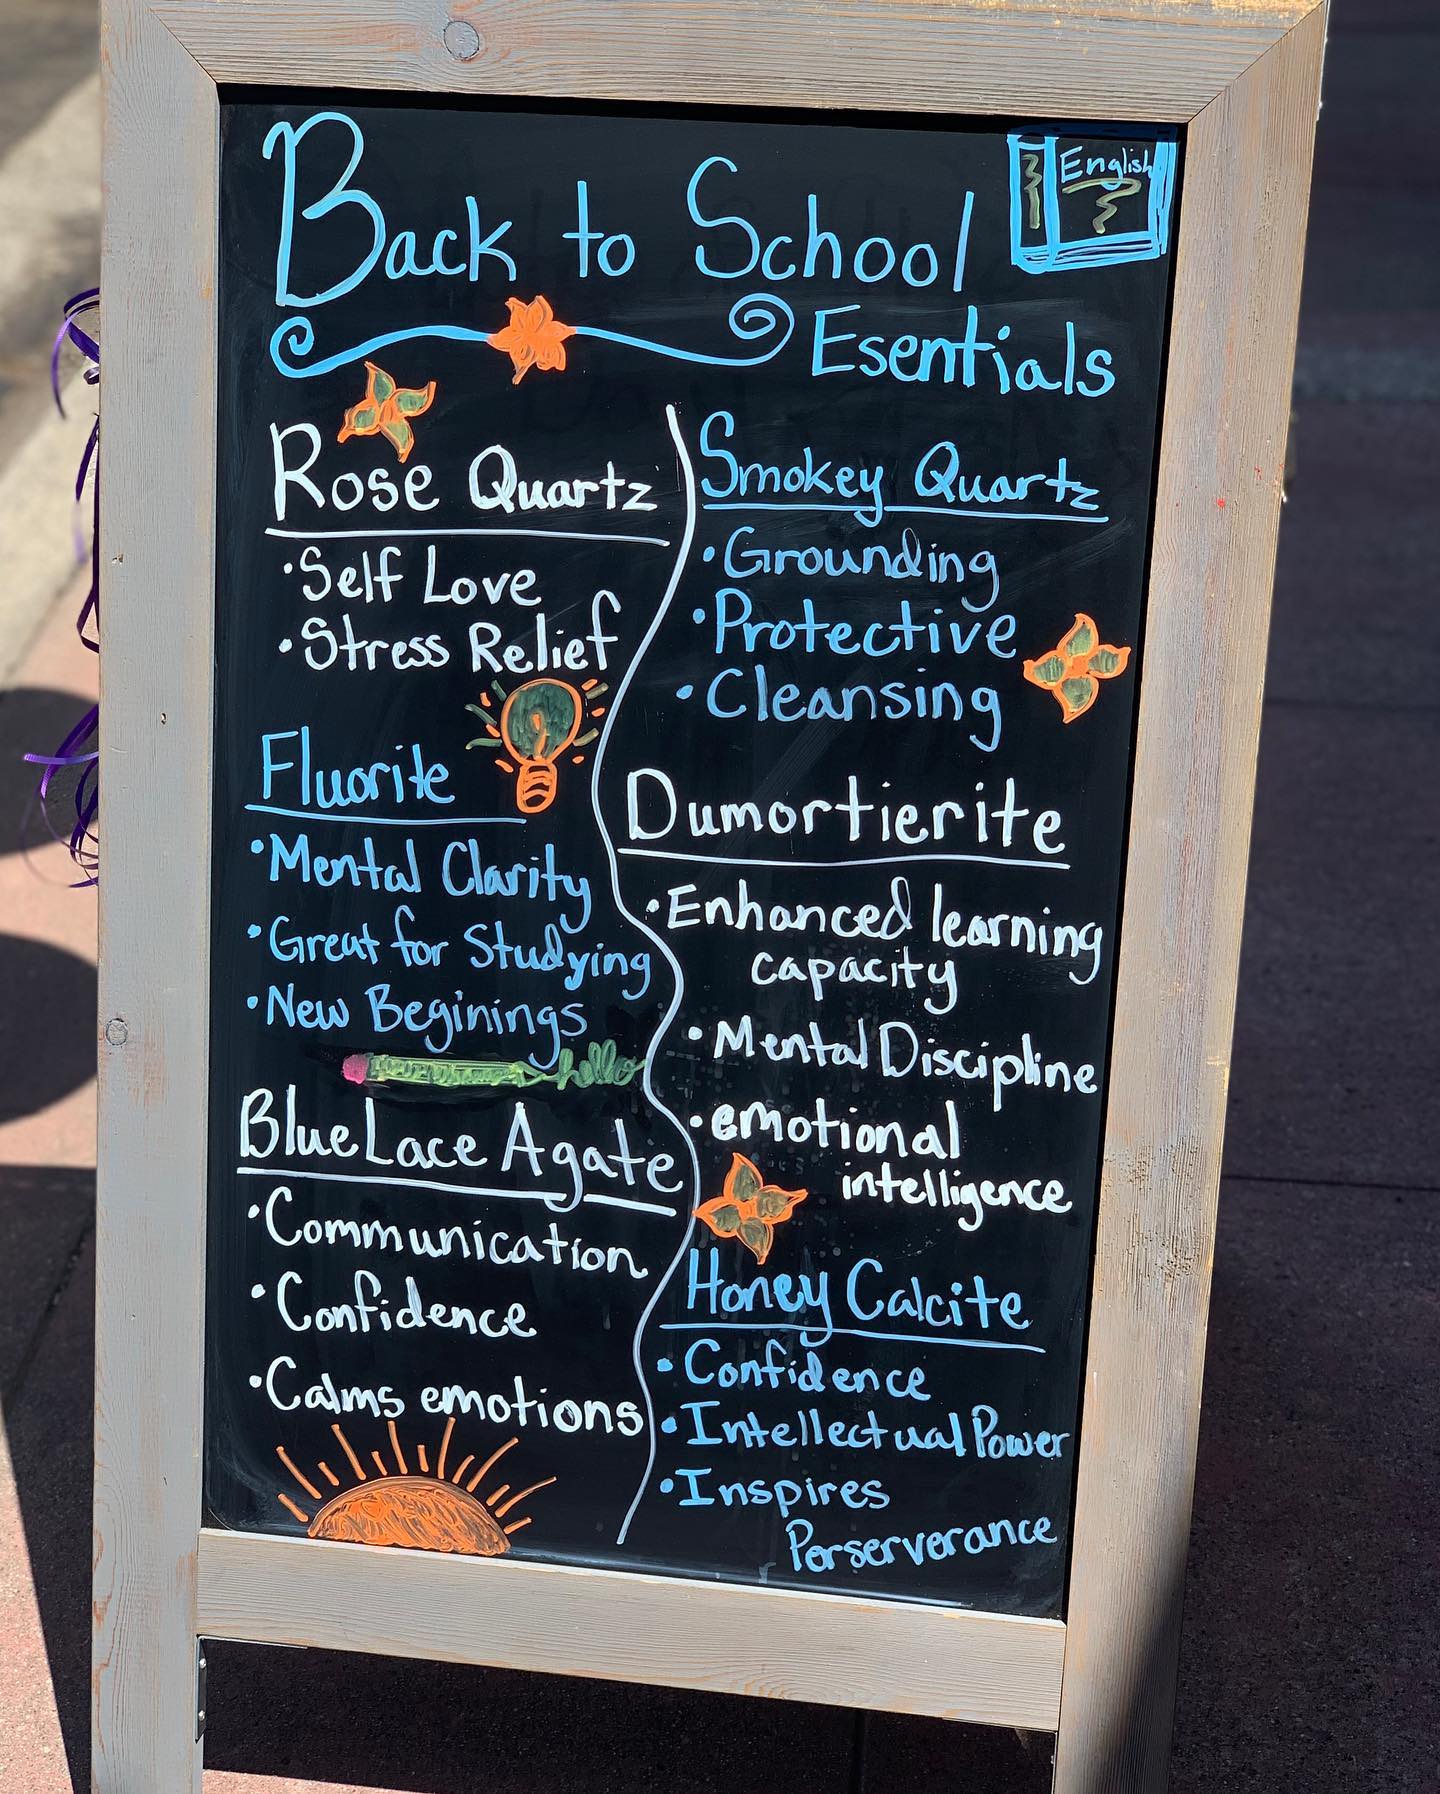 Back to School
English
Esentials
Rose Quartz
• Self Love
• Stress Relief
Fluorite
• Mental Clarity
• Great for Studying
• New Beginings
hello
Blue Lace Agate
• Communication
• Confidence
• Calms emotions
Smokey Quartz
• Grounding
• Protective
• Cleansing
Dumortierite
• Enhanced learning
capacity
• Mental Discipline
• emotional
intelligence
Honey Calcite
• Confidence
• Intellectual Power
• Inspires
Perserverance